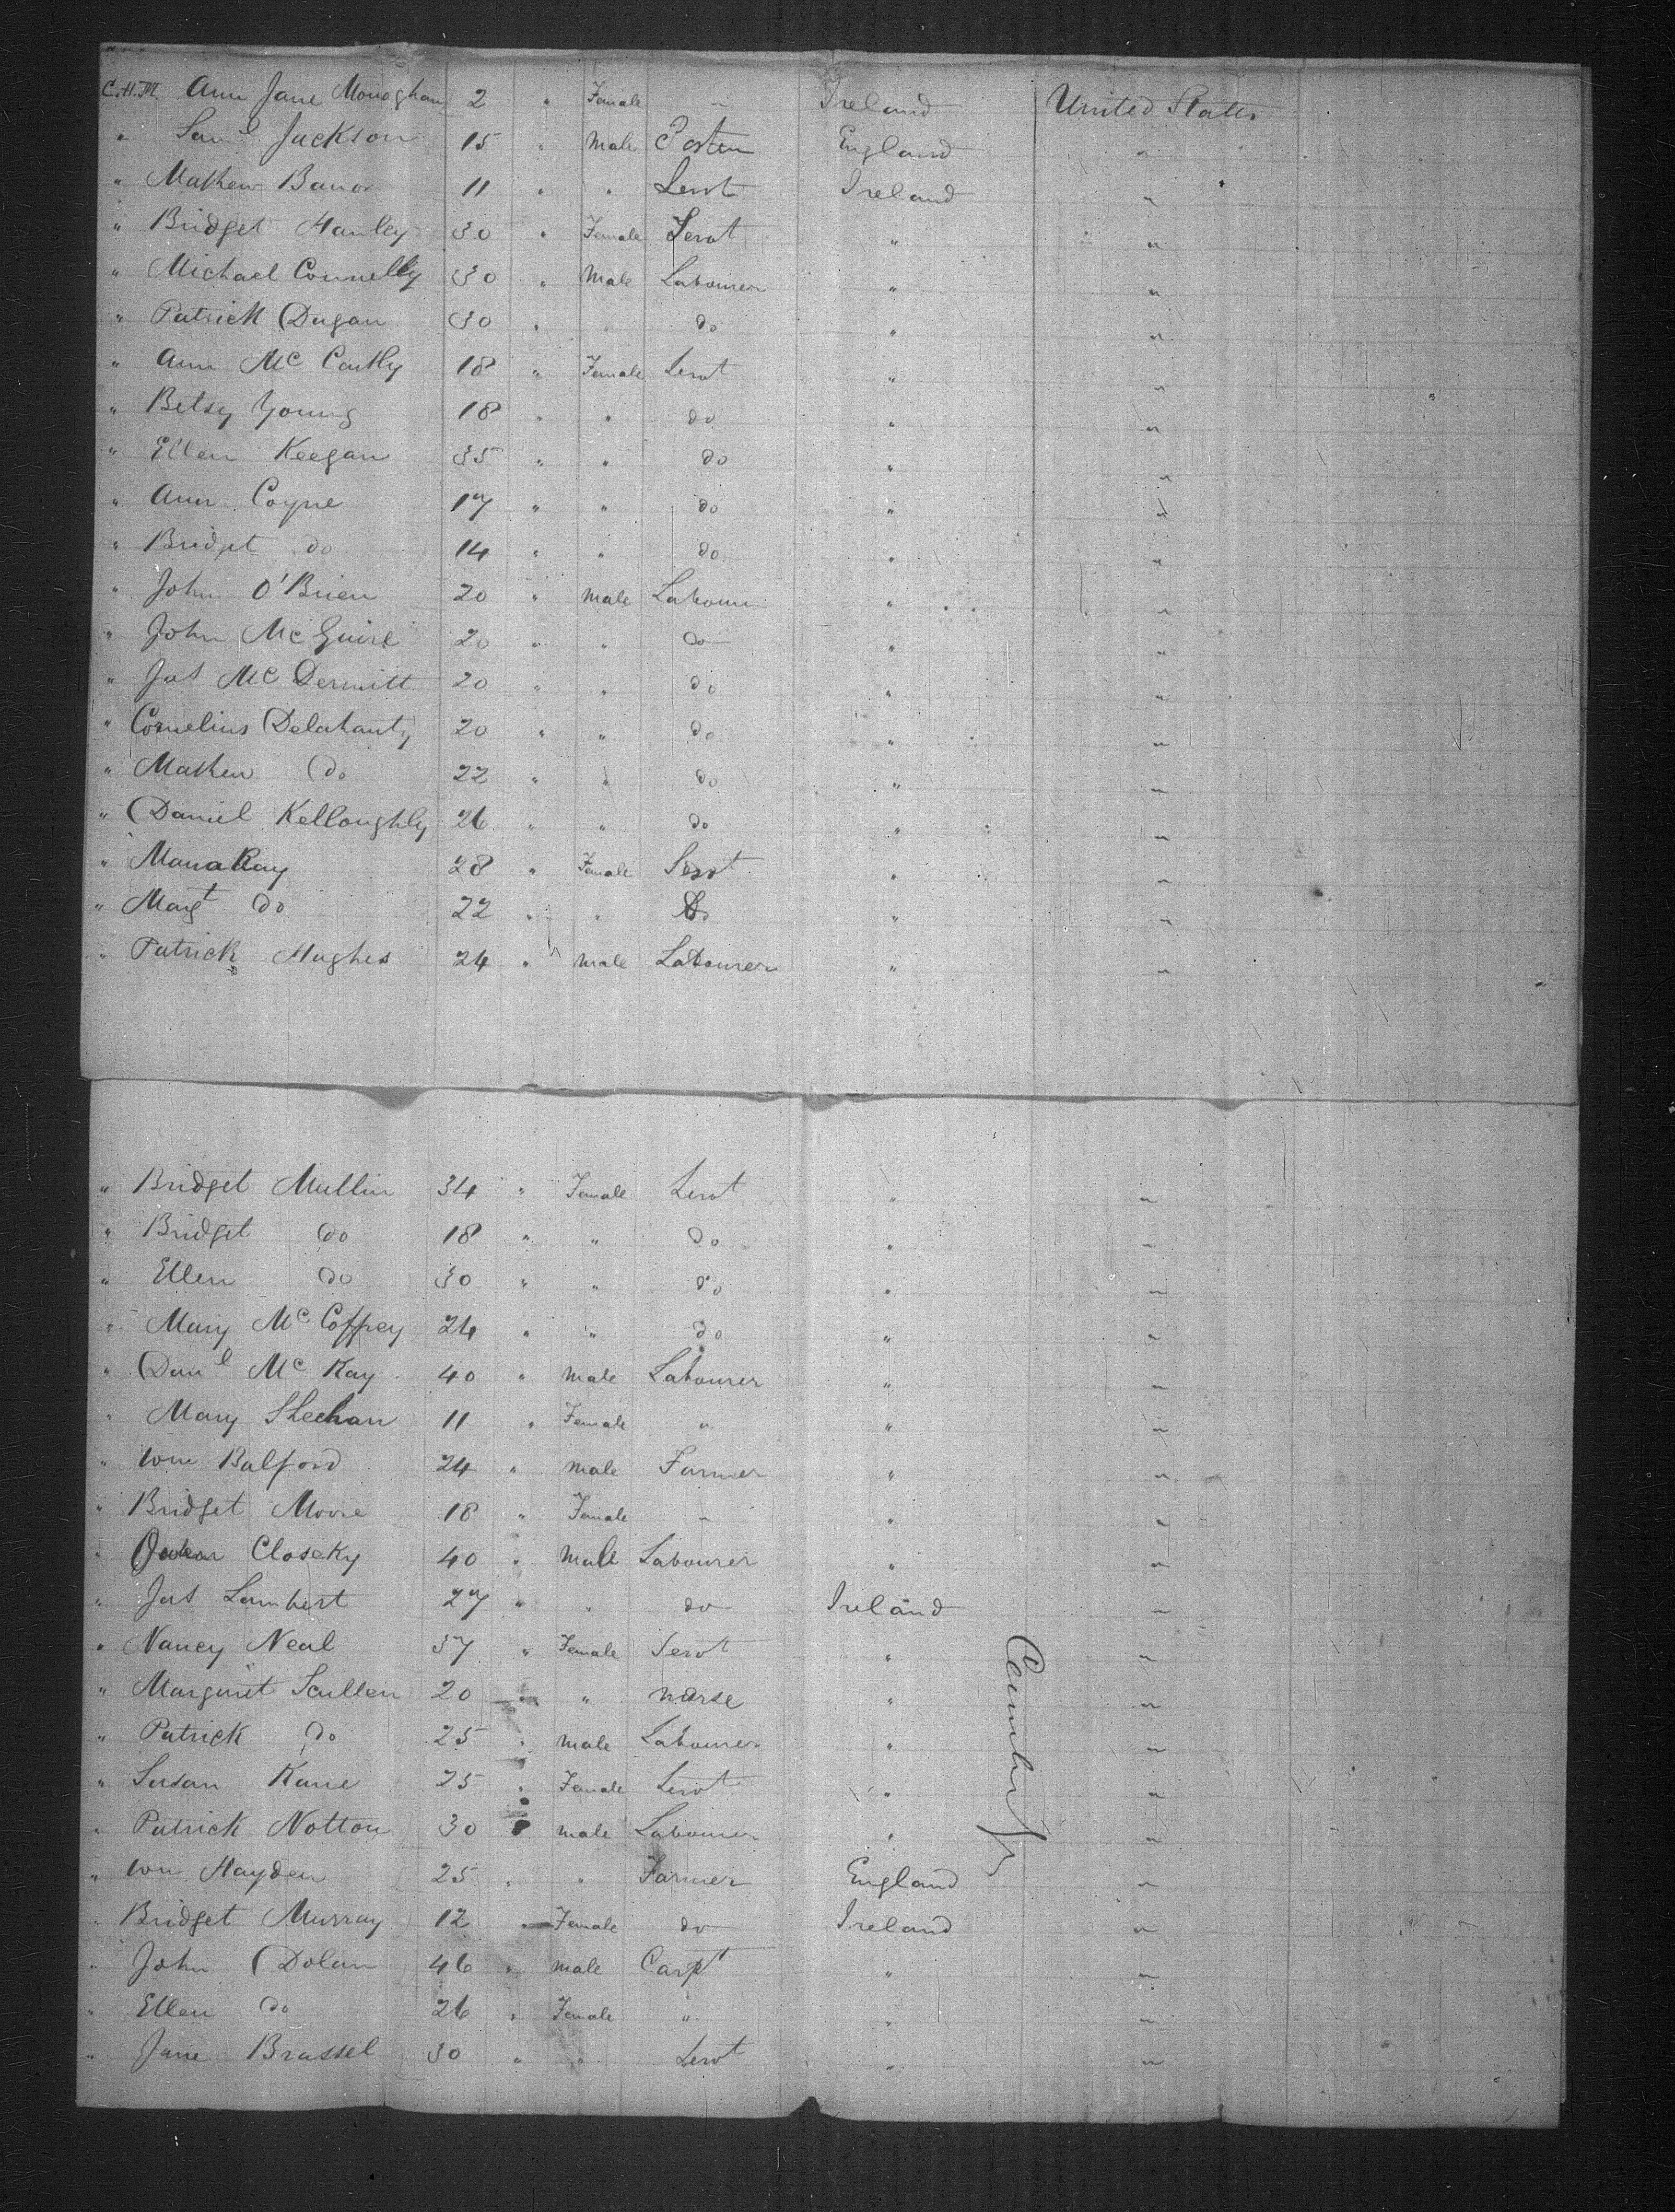 C.H.M. Ann Jane Monoghan 2 " Female " Ireland United States
" Saml Jackson 15 " Male England "
" Mathew 11 " " Servt Ireland "
" Bridget Hanley 30 " Female Servt " "
" Michael Connelly 30 " Male Labourer " "
" Patrick Dugan 30 " " do " "
" Ann McCarthy 18 " Female Servt " "
" Betsy Young 18 " " do " "
" Ellen Keegan 35 " " do " "
" Ann Coyne 17 " " do " "
" Bridget do 14 " " do " "
" John O'Brien 20 " Male Labourer " "
" John McGuire 20 " " do " "
" Jas McDermitt 20 " " do " "
" Cornelius Delahanty 20 " " do " "
" Mathew do 22 " " do " "
" Daniel Kelloughly 26 " " do " "
" Maria Ray 28 " Female Servt " "
" Margt do 22 " " do " "
" Patrick Hughes 24 " Male Labourer " "
" Bridget Mullin 34 " Female Servt " "
" Bridget do 18 " " do " "
" Ellen do 30 " " do " "
" Mary McCaffrey 24 " " do " "
" Danl McKay 40 " Male Labourer " "
" Mary Sheehan 11 " Female " " "
" Wm Balford 24 " Male Farmer " "
" Bridget Moore 18 " Female " " "
" Closeky 40 " Male Labourer " "
" Jas Lambert 27 " " do Ireland "
" Nancy Neal 37 " Female Servt " "
" Margaret Scullen 20 " " nurse " "
" Patrick do 25 " Male Labourer " "
" Susan Kane 25 " Female Servt " "
" Patrick Notton 30 " Male Labourer " "
" Wm Hayden 25 " " Farmer England "
" Bridget Murray 12 " Female do Ireland "
" John Dolan 46 " Male Carpt " "
" Ellen do 26 " Female " " "
" Jane Brassel 30 " " Servt " "